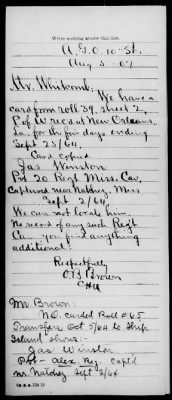 Write nothing above this line.
A.G.O. 10-St.
Aug 5-07
Mr. Whitcomb:
We have a
card from roll 39, sheet 2,
P of W recs at New Orleans,
La. for the five days ending
Sept 25/64.
Card copied
Jas Winston
Pvt 20 Regt Miss. Cav.
Captured near Natchez, Miss
Sept 2/64.
We can not locate him.
No record of any such Regt.
Can you find anything
additional?
Respectfully
Brown
Mr. Brown:
N.O. carded Roll #65
Transfers Oct 5/64 to Ship
Island shows:-
Jas Winston
Pvt- Alex. Reg. Capt'd
nr. Natchez Sept 2/64